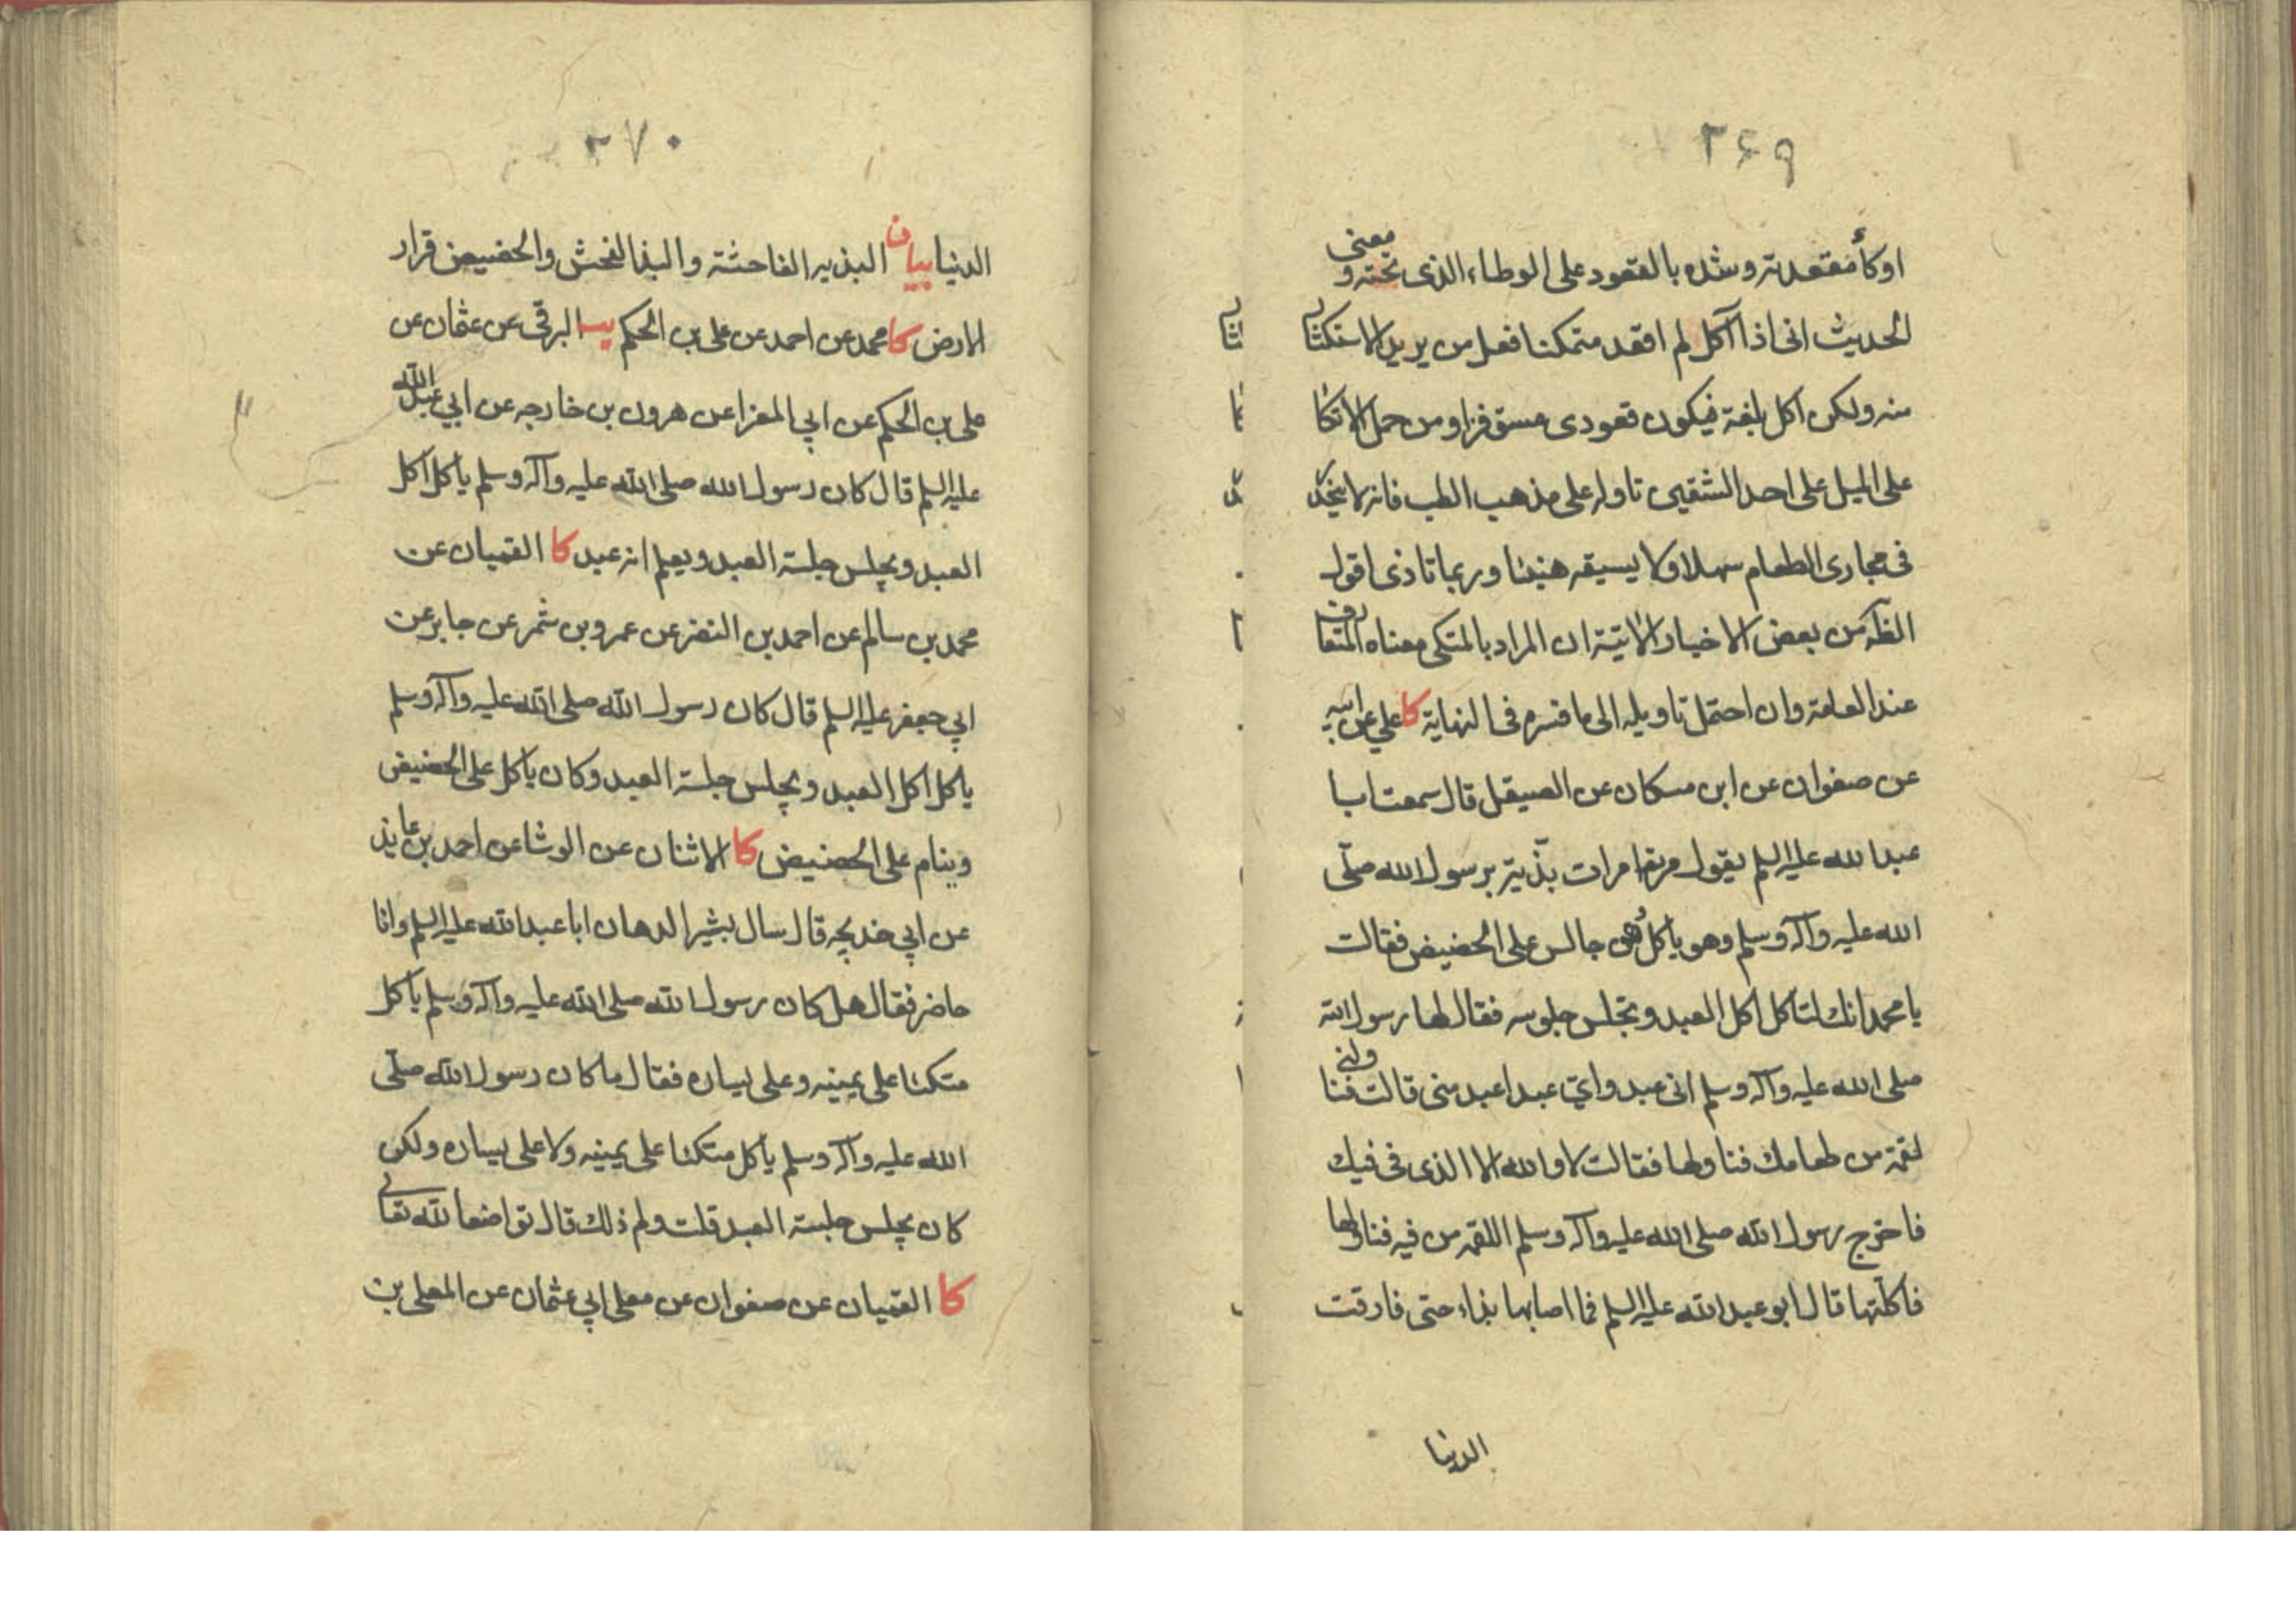 ۳۶۹
اوكأ مقعدته وشده بالقعود على الوطاء الذى تحته ومعنى
الحديث انى اذا آكل لم اقعد متمكنا فعل من يريد الاستكثار
منه ولكن آكل بلغة فيكون قعودى مستوفزا ومن حمل الاتكا
على الميل على احد الشقين تاوله على مذهب الطب فانه لا ينحدر
فى مجارى الطعام سهلا ولا يسيغه هنيئا وربما تاذى اقول
الظه من بعض الاخبار الآتية ان المراد بالمتكى معناه المتعارف
عند العامة وان احتمل تاويله الى ما فسره فى النهاية كا على عن ابيه
عن صفوان عن ابن مسكان عن الصيقل قال سمعت ابا
عبد الله عليه السلم يقول مرت امرات بذية برسول الله صلّى
الله عليه وآله وسلم وهو ياكل وهو جالس على الحضيض فقالت
يا محمد انك لتاكل اكل العبد وتجلس جلوسه فقال لها رسول الله
صلى الله عليه وآله وسلم انى عبد واىّ عبد اعبد منى قالت فناولنى
لقمة من طعامك فناولها فقالت لا والله الا الذى فى فيك
فاخرج رسول الله صلى الله عليه وآله وسلم اللقمه من فيه فناولها
فاكلتها قال ابو عبد الله عليه السلم فما اصابها بذاء حتى فارقت
الدنيا
۳۷۰
الدنيا بيان البذيه الفاحشة والبذا الفحش والحضيض قرار
الارض كا محمد عن احمد عن على بن الحكم يب البرقى عن عثمان عن
على بن الحكم عن ابي المغرا عن هرون بن خارجه عن ابي عبد الله
عليه السلم قال كان رسول الله صلى الله عليه وآله وسلم ياكل اكل
العبد ويجلس جلسة العبد ويعلم انه عبد كا القميان عن
محمد بن سالم عن احمد بن النضر عن عمرو بن شمر عن جابر عن
ابي جعفر عليه السلم قال كان رسول الله صلى الله عليه وآله وسلم
ياكل اكل العبد ويجلس جلسة العبد وكان ياكل على الحضيض
وينام على الحضيض كا الاثنان عن الوشا عن احمد بن عايذ
عن ابي خديجه قال سال بشير الدهان ابا عبد الله عليه السلم وانا
حاضر فقال هل كان رسول الله صلى الله عليه وآله وسلم ياكل
متكئا على يمينه وعلى يساره فقال ما كان رسول الله صلّى
الله عليه وآله وسلم ياكل متكئا على يمينه ولا على يساره ولكن
كان يجلس جلسة العبد قلت ولم ذلك قال تواضعا لله تعالى
كا القميان عن صفوان عن معلى ابي عثمان عن المعلى بن